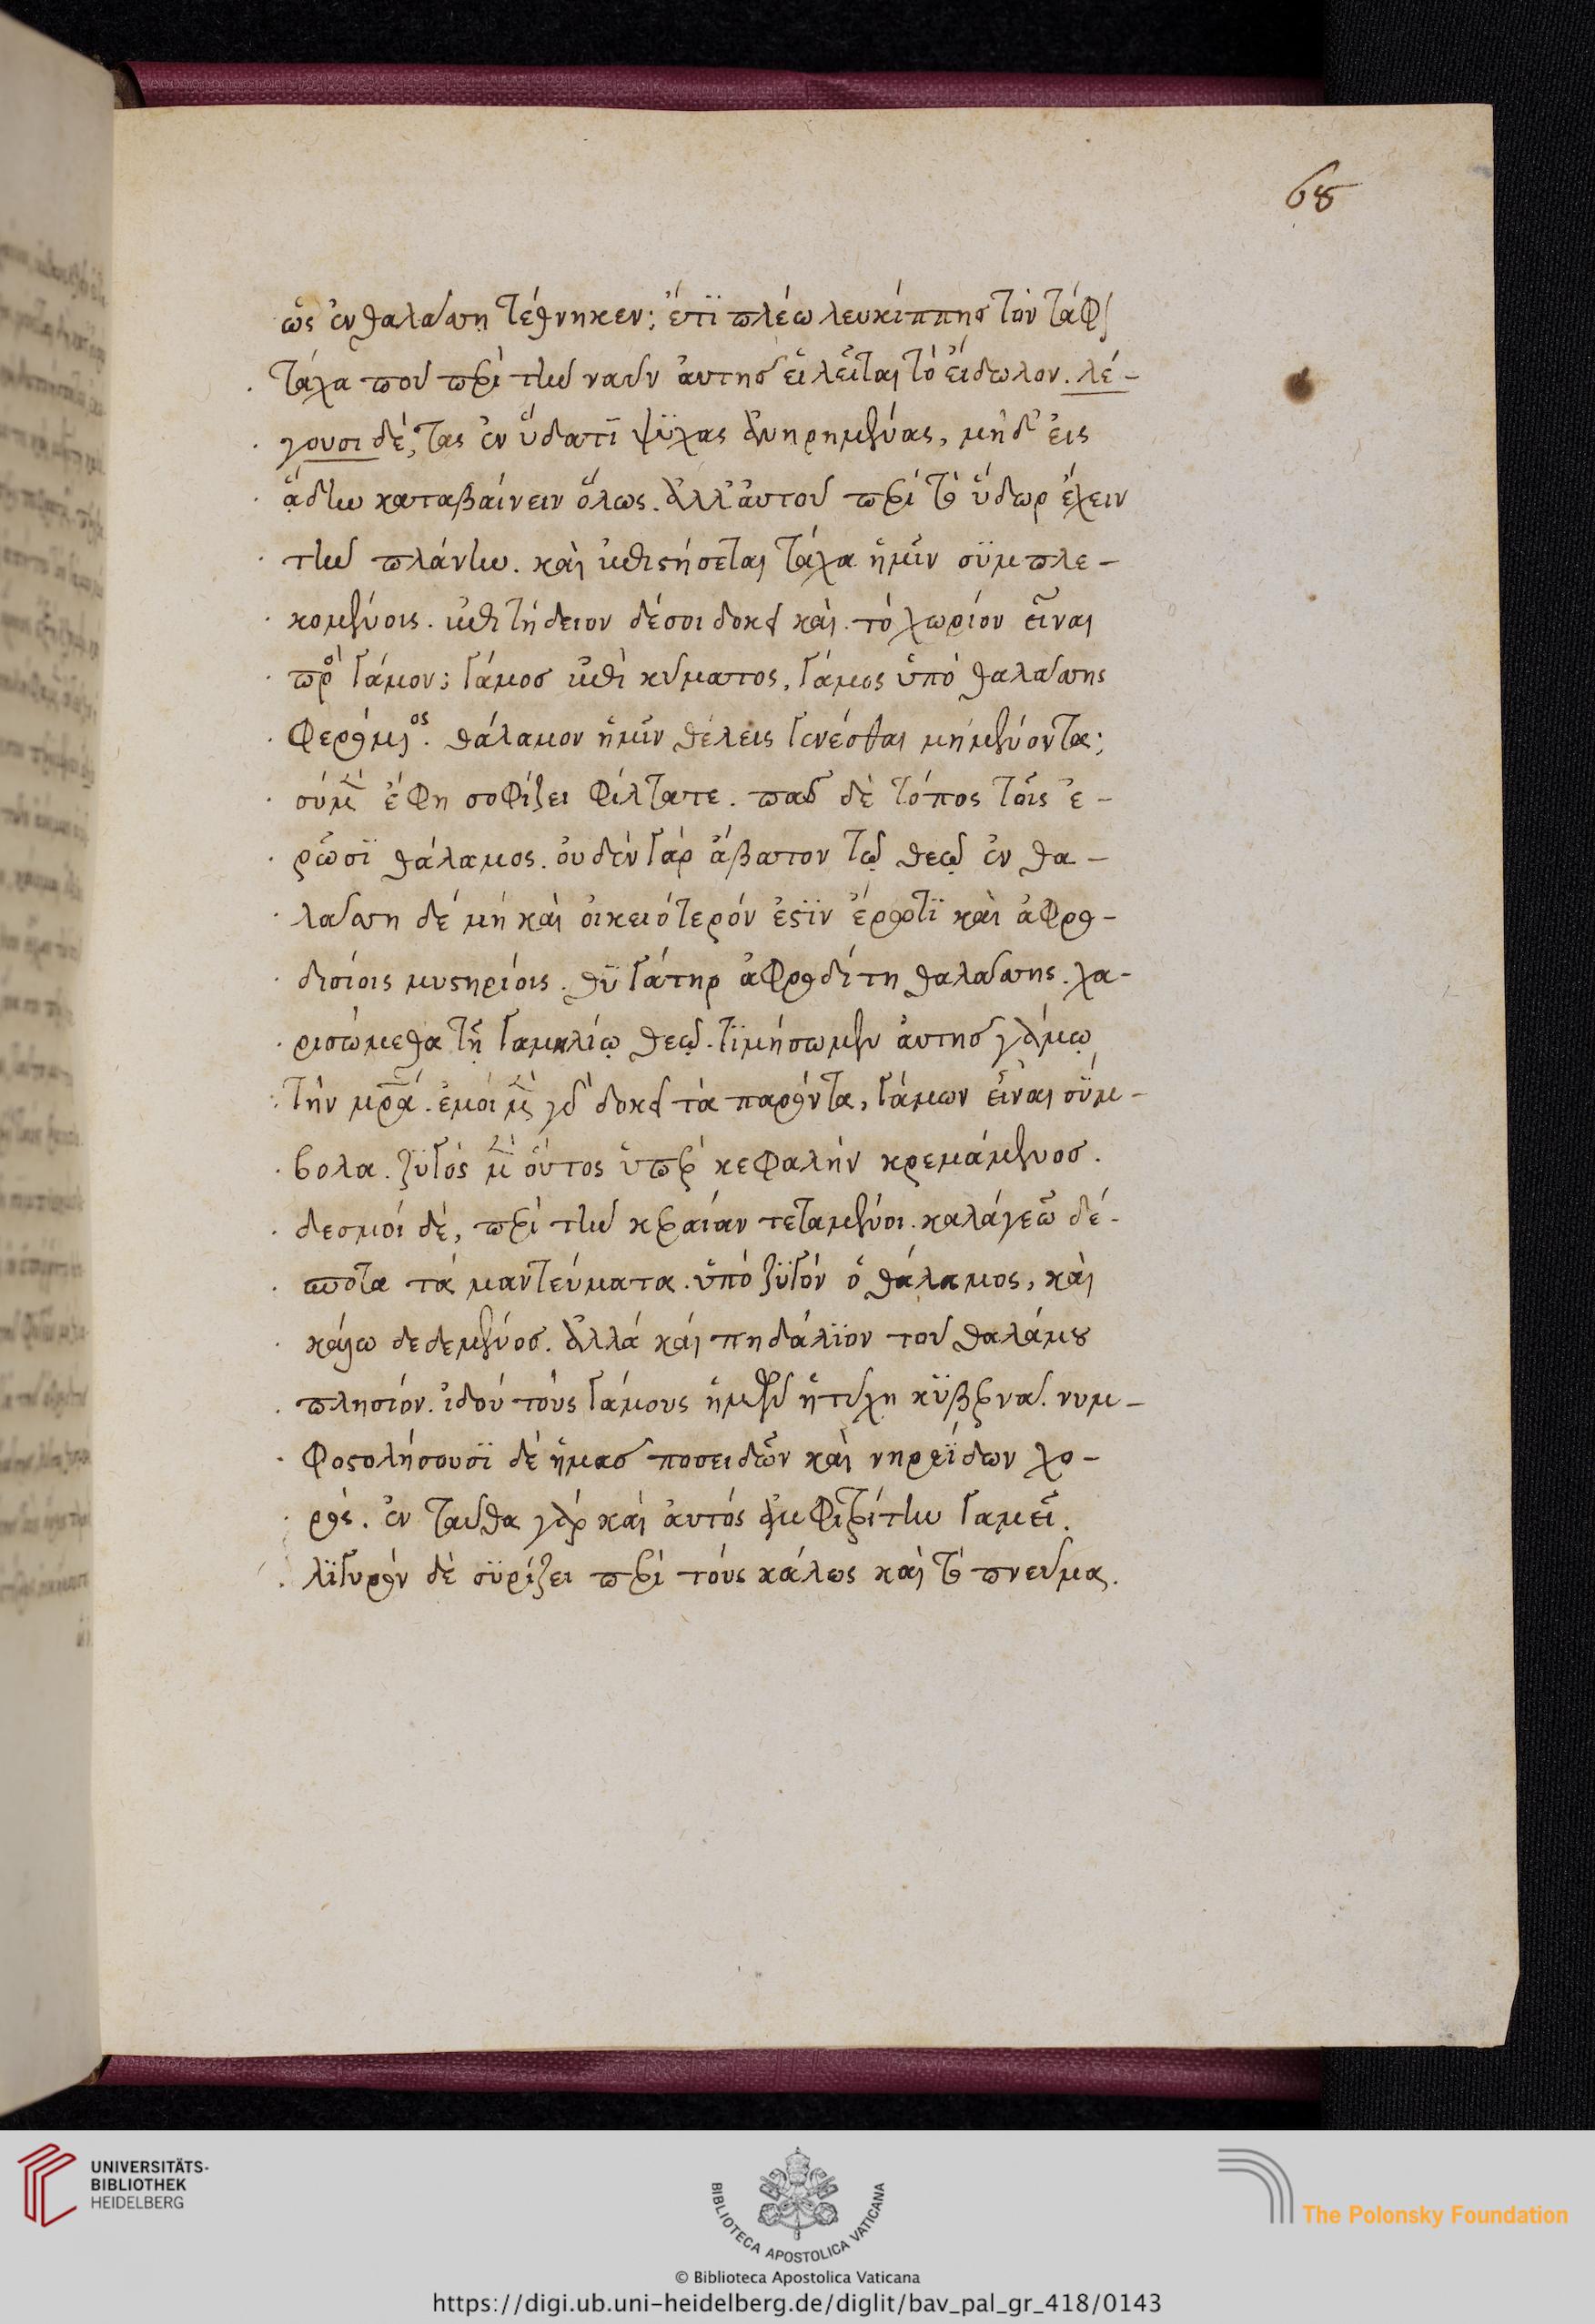 68
ὡς ἐν θαλάττη τέθνηκεν; ἔτϊ πλέω λευκίππης τὸν τάφ
τάχα που περὶ τὴν ναῦν ἀυτῆς εἰλεῖται τὸ εἴδωλον. λέ-
γουσι δὲ, τὰς ἐν ὕδατϊ ψϋχὰς ἀνηρημένας, μηδ' εἰς
ᾅδην καταβαίνειν ὅλως. ἀλλ' ἀυτοῦ περὶ τὸ ὕδωρ ἔχειν
τὴν πλάνην. καὶ ἐπιστήσεται τάχα ἡμῖν σϋμπλε-
κομένοις. ἐπιτήδειον δέ σοι δοκεῖ καὶ τὸ χωρίον εἶναι
πρὸ γάμον; γάμος ἐπὶ κύματος, γάμος ὑπὸ θαλάττης
φερόμενος. θάλαμον ἡμῖν θέλεις γενέσθαι μὴ μένοντα;
σὺ μὲν ἔφη σοφίζει φίλτατε. πᾶς δὲ τόπος τοῖς ἐ-
ρῶσϊ θάλαμος. οὐδὲν γὰρ ἄβατον τῷ θεῷ ἐν θα-
λάττη δὲ μὴ καὶ οἰκειότερόν ἐστϊν ἔρωτϊ καὶ ἀφρο-
δισίοις μυστηρίοις. θϋγάτηρ ἀφροδίτη θαλάττης. χα-
ρισώμεθα τῇ γαμηλίῳ θεῷ. τϊμήσωμεν ἀυτῆς γάμῳ
τὴν μρα. ἐμοὶ μὲν γὰρ δοκεῖ τὰ παρόντα, γάμων εἶναι σϋμ-
βολα. ζϋγὸς μὲν οὗτος ὑπὲρ κεφαλὴν κρεμάμενος.
δεσμοὶ δὲ, περὶ τὴν κεραίαν τεταμένοι. καλά γε ὦ δέ-
σποτα τὰ μαντεύματα. ὑπὸ ζϋγὸν ὁ θάλαμος, καὶ
κάλω δεδεμένος. ἀλλὰ καὶ πηδάλϊον τοῦ θαλάμου
πλησίον. ἰδοὺ τοὺς γάμους ἡμῶν ἡ τύχη κϋβερνᾶ. νυμ-
φοστολήσουσϊ δὲ ἡμᾶς ποσειδῶν καὶ νηρεΐδων χο-
ρός. ἐνταῦθα γὰρ καὶ ἀυτὸς ἀμφιτρίτην γαμεῖ.
λϊγυρὸν δὲ σϋρίζει περὶ τοὺς κάλως καὶ τὸ πνεῦμα.
UNIVERSITÄTS-
BIBLIOTHEK
HEIDELBERG
BIBLIOTECA APOSTOLICA VATICANA
The Polonsky Foundation
© Biblioteca Apostolica Vaticana
https://digi.ub.uni-heidelberg.de/diglit/bav_pal_gr_418/0143